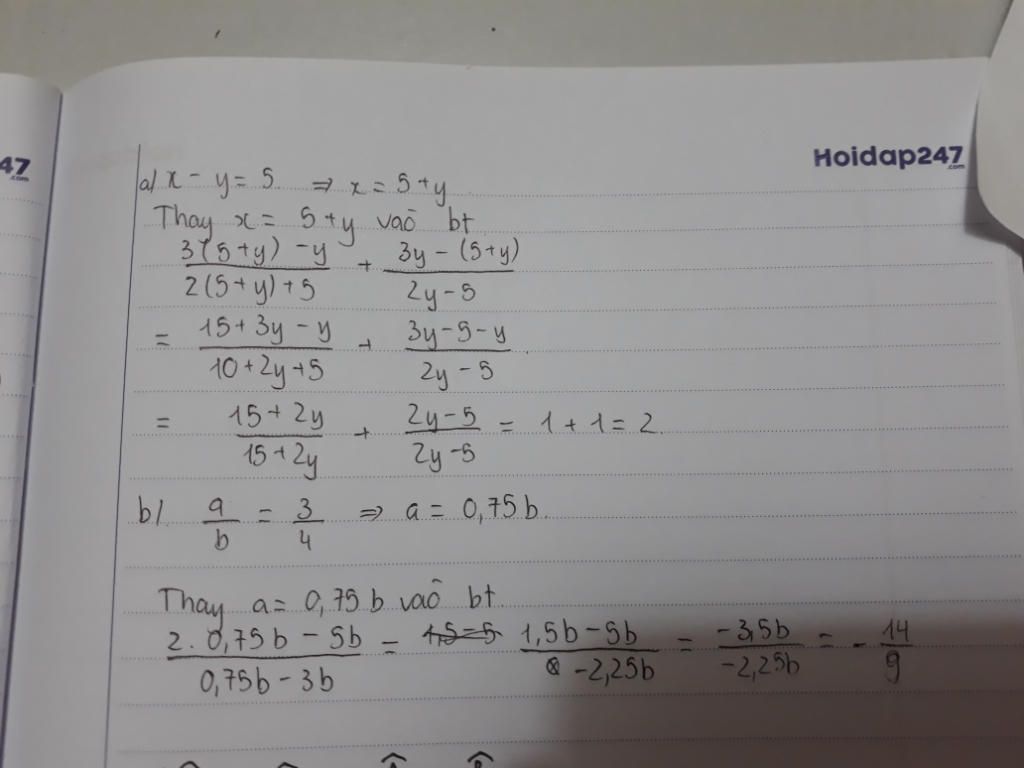 47
.com
Hoidap247
.com
a/ x - y = 5 ⇒ x = 5 + y
Thay x = 5 + y vào bt
3(5+y) - y / 2(5+y)+5 + 3y - (5+y) / 2y - 5
= 15 + 3y - y / 10 + 2y + 5 + 3y - 5 - y / 2y - 5
= 15 + 2y / 15 + 2y + 2y - 5 / 2y - 5 = 1 + 1 = 2
b/ a / b = 3 / 4 ⇒ a = 0,75b
Thay a = 0,75b vào bt
2. 0,75b - 5b / 0,75b - 3b = 1,5b - 5b / -2,25b = -3,5b / -2,25b = - 14 / 9